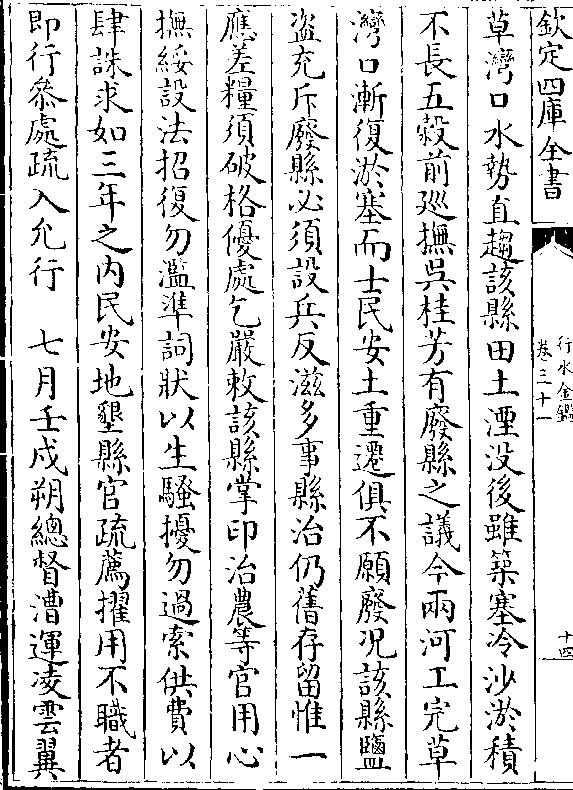 欽定四庫全書
行水金鑑
卷三十一
十四
草灣口水勢直趨該縣田土湮没後雖築塞冷沙淤積
不長五榖前廵撫吳桂芳有廢縣之議今兩河工完草
灣口漸復淤塞而士民安土重遷俱不願廢况該縣鹽
盗充斥廢縣必須設兵反滋多事縣治仍舊存留惟一
應差糧須破格優處乞嚴敕該縣掌印治農等官用心
撫綏設法招復勿濫準詞狀以生騷擾勿過索供費以
肆誅求如三年之内民安地墾縣官疏薦擢用不職者
即行叅處疏入允行　七月壬戍朔總督漕運凌雲翼